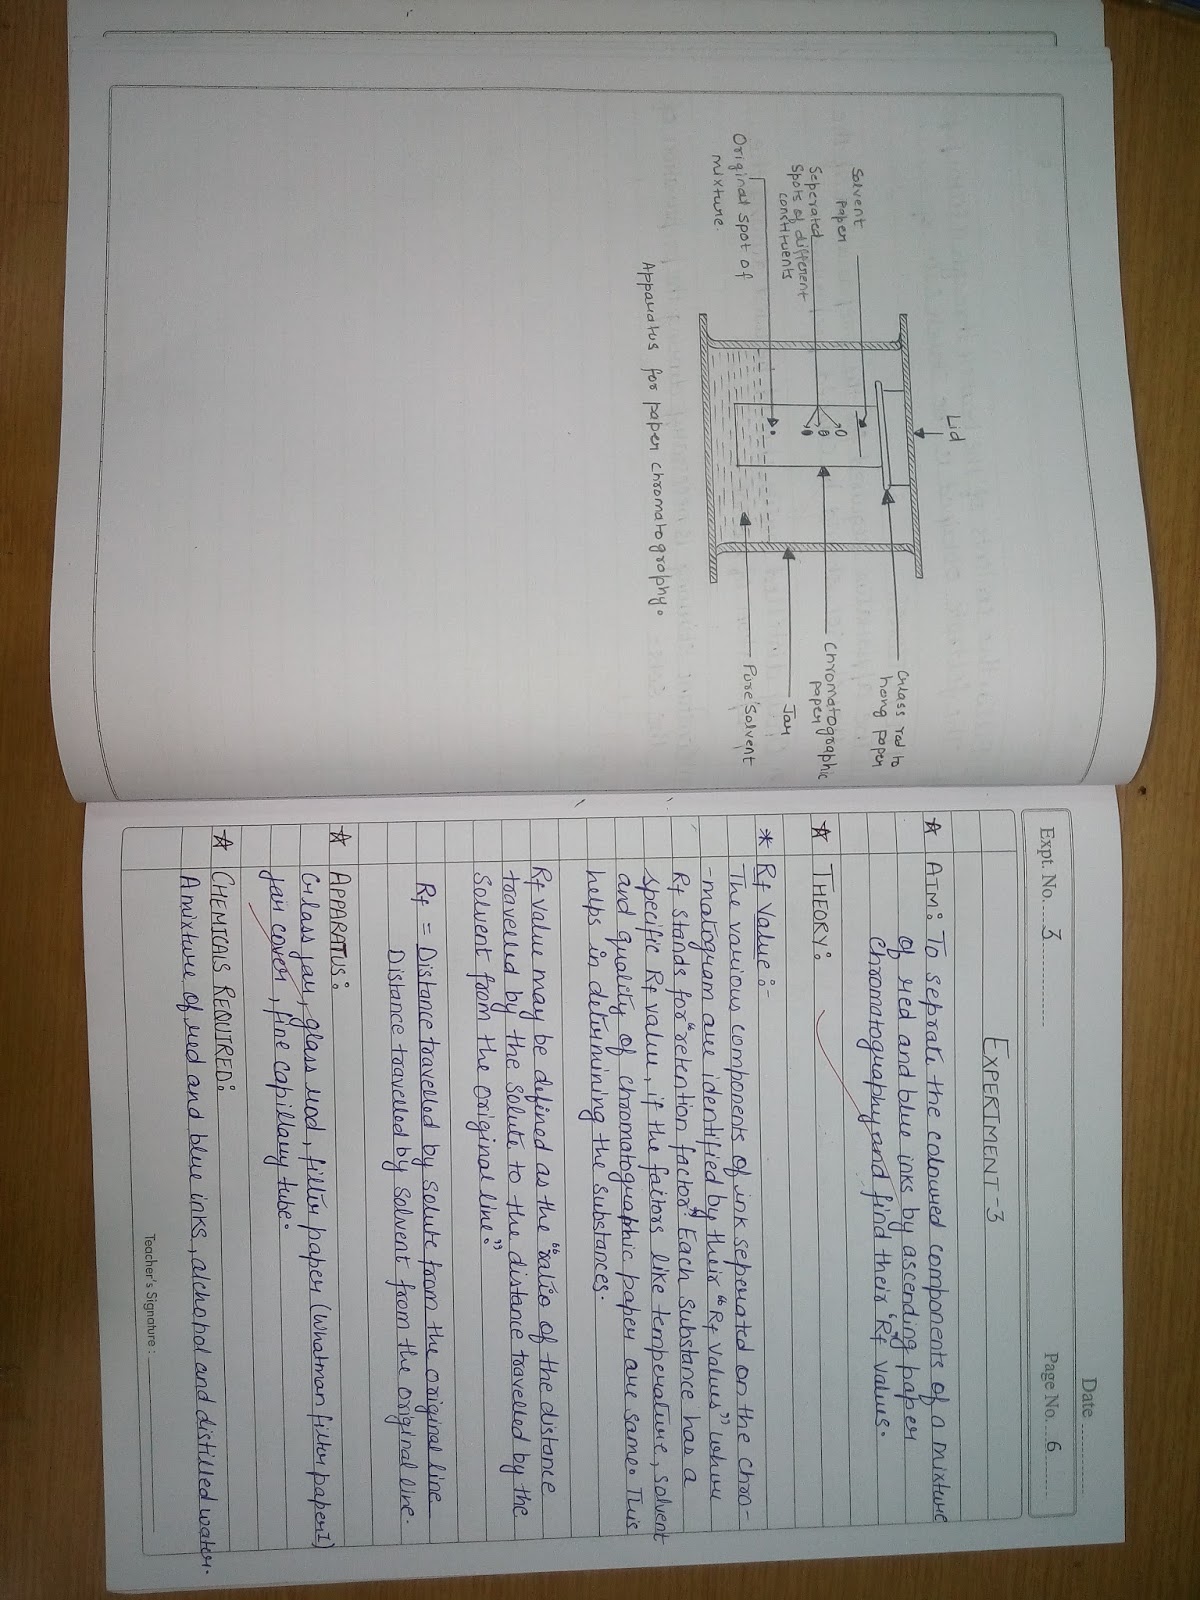 Lid
Glass rod to
hang paper
Solvent
paper
Seperated
spots of different
constituents
Chromatographic
paper
Jar
Original spot of
mixture.
Pure Solvent
Apparatus for paper chromatography.
Date
Expt. No. 3
Page No. 6
EXPERTMENT-3
☆ AIM: To seprate the coloured components of a mixture
of red and blue inks by ascending paper
chromatography and find their "Rf values.
☆ THEORY:
* Rf Value:-
The various components of ink seperated on the chro-
-matogram are identified by their "Rf values" where
Rf stands for "retention factor". Each substance has a
specific Rf value, if the faitors like temperature, solvent
and quality of chromatographic paper are same. This
helps in detirmining the substances.
Rf value may be defined as the "ratio of the distance
travelled by the solute to the distance travelled by the
Solvent from the original line."
Rf = Distance travelled by solute from the original line
Distance travelled by solvent from the original line.
☆ APPARATUS:
Glass jar, glass rod, filter paper (Whatman filter paper 1)
jar cover, fine capillary tube.
☆ CHEMICALS REQUIRED:
A mixture of red and blue inks, alchohol and distilled water.
Teacher's Signature :